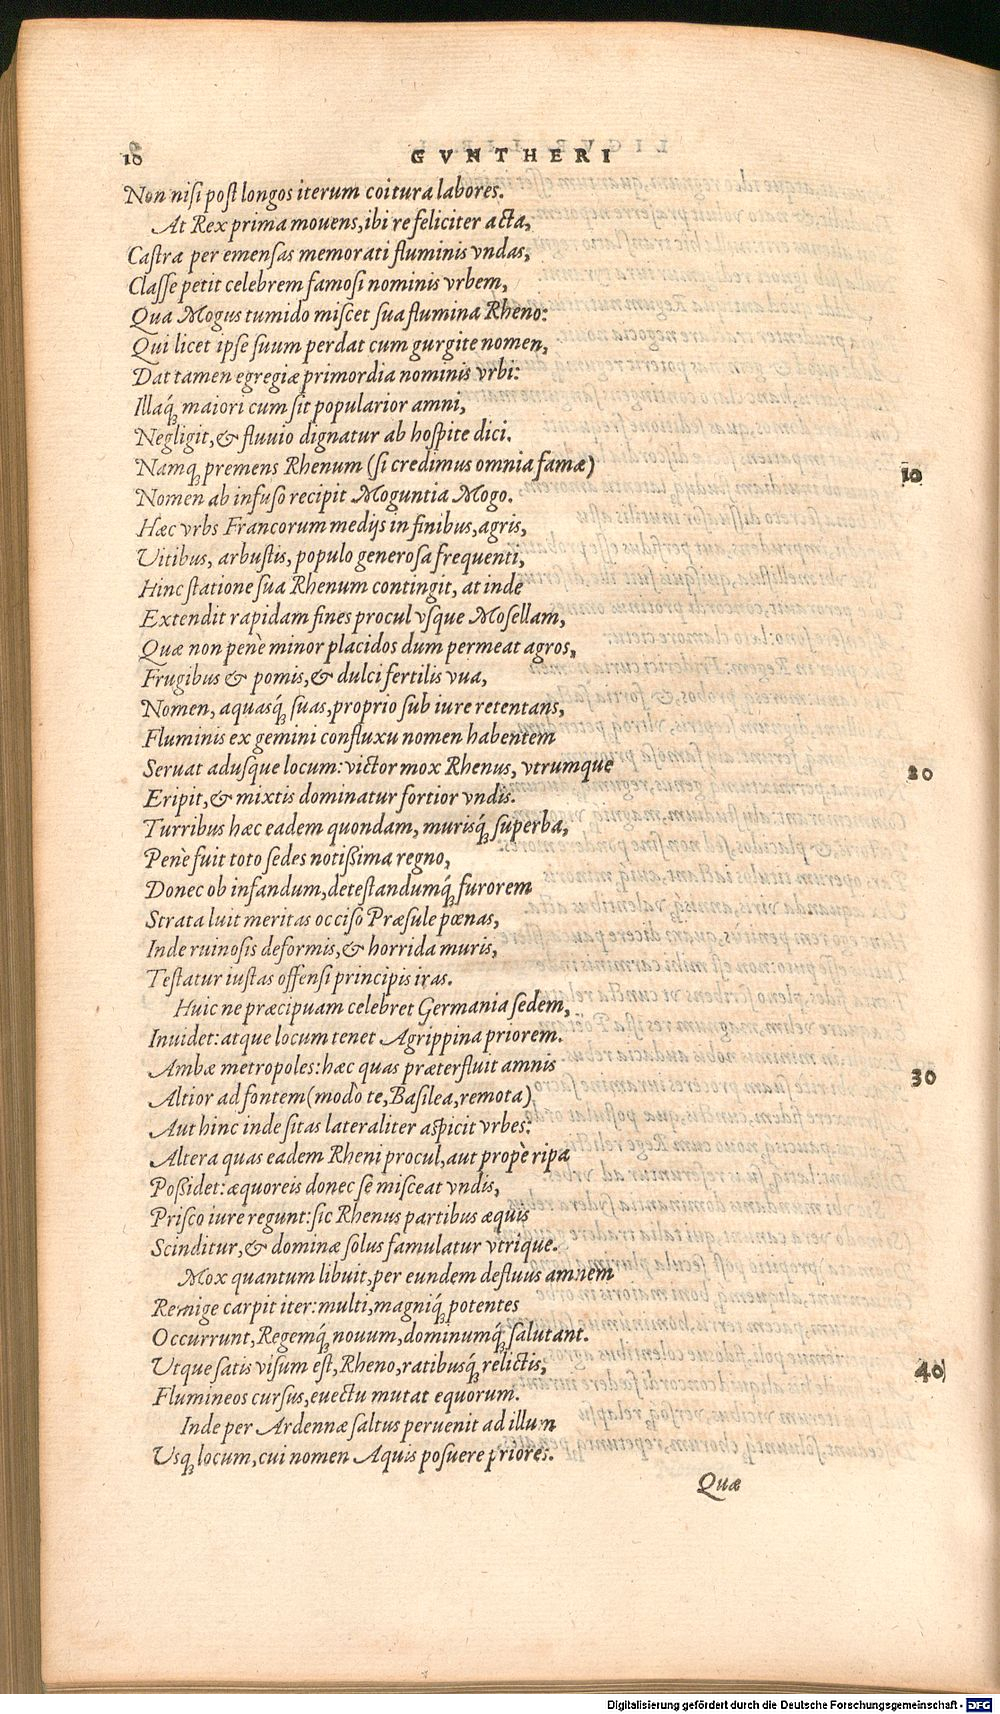 10 GVNTHERI
Non nisi post longos iterum coitura labores.
At Rex prima mouens, ibi re feliciter acta,
Castra per emensas memorati fluminis vndas,
Classe petit celebrem famosi nominis vrbem,
Qua Mogus tumido miscet sua flumina Rheno:
Qui licet ipse suum perdat cum gurgite nomen,
Dat tamen egregiæ primordia nominis vrbi:
Illaq́; maiori cum sit popularior amni,
Negligit, & fluuio dignatur ab hospite dici.
Namq; premens Rhenum (si credimus omnia famæ)
10
Nomen ab infuso recipit Moguntia Mogo.
Hæc vrbs Francorum medijs in finibus, agris,
Vitibus, arbustis, populo generosa frequenti,
Hinc statione sua Rhenum contingit, at inde
Extendit rapidam fines procul vsque Mosellam,
Quæ non penè minor placidos dum permeat agros,
Frugibus & pomis, & dulci fertilis vua,
Nomen, aquasq́; suas, proprio sub iure retentans,
Fluminis ex gemini confluxu nomen habentem
Seruat adusque locum: victor mox Rhenus, vtrumque
20
Eripit, & mixtis dominatur fortior vndis.
Turribus hæc eadem quondam, murisq́; superba,
Penè fuit toto sedes notißima regno,
Donec ob infandum, detestandumq́; furorem
Strata luit meritas occiso Præsule pœnas,
Inde ruinosis deformis, & horrida muris,
Testatur iustas offensi principis iras.
Huic ne præcipuam celebret Germania sedem,
Inuidet: atque locum tenet Agrippina priorem.
Ambæ metropoles: hæc quas præterfluit amnis
30
Altior ad fontem (modò te, Basilea, remota)
Aut hinc inde sitas lateraliter aspicit vrbes:
Altera quas eadem Rheni procul, aut propè ripa
Poßidet: æquoreis donec se misceat vndis,
Prisco iure regunt: sic Rhenus partibus æquis
Scinditur, & dominæ solus famulatur vtrique.
Mox quantum libuit, per eundem defluus amnem
Remige carpit iter: multi, magniq́; potentes
Occurrunt, Regemq́; nouum, dominumq́; salutant.
Utque satis visum est, Rheno, ratibusq́; relictis,
40
Flumineos cursus, euectu mutat equorum.
Inde per Ardennæ saltus peruenit ad illum
Usq; locum, cui nomen Aquis posuere priores.
Quæ
Digitalisierung gefördert durch die Deutsche Forschungsgemeinschaft - DFG